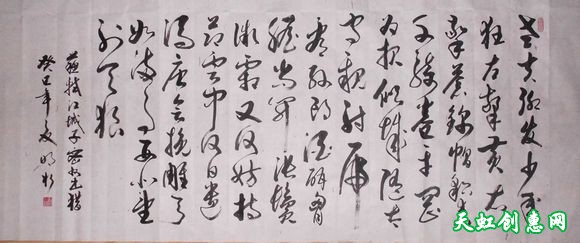 老夫聊发少年
狂左牵黄右
擎苍锦帽貂裘
千骑卷平冈
为报倾城随太
守亲射虎
看孙郎酒酣胸
胆尚开张鬓
微霜又何妨持
节云中何日遣
冯唐会挽雕弓
如满月西北望
射天狼
苏轼江城子密州出猎
癸巳年友明书
天虹创惠网